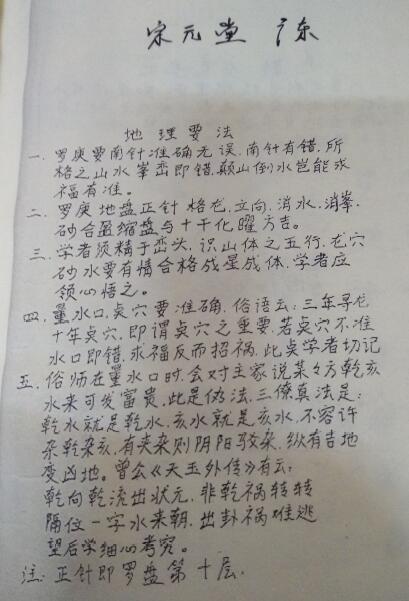 宋元堂 广东
地理要法
一、罗庚要南针准确无误.南针有错.所
格之山水峯峦即错.颠山倒水岂能求
福有准.
二、罗庚地盘正针格龙.立向.消水.消拳.
砂合盈缩盘与十干化曜方吉.
三、学者须精于峦头.识山体之五行.龙穴
砂水要有情合格成星成体.学者应
领心悟之.
四.量水口.点穴要准确.俗语云:三年寻龙
十年点穴.即谓点穴之重要.若点穴不准
水口即错.求福反而招祸.此点学者切记
五.俗师在量水口时.会对主家说某々方乾亥
水来可发富贵.此是伪法.三僚真法是:
乾水就是乾水.亥水就是亥水.不容许
杂乾杂亥.有夹杂则阴阳驳杂.纵有吉地
变凶地.曾公《天玉外传》有云:
乾向乾流出状元.非乾祸转转
隔位一字水来朝.出卦祸难逃
望后学细心考究.
注:正针即罗盘第十层.